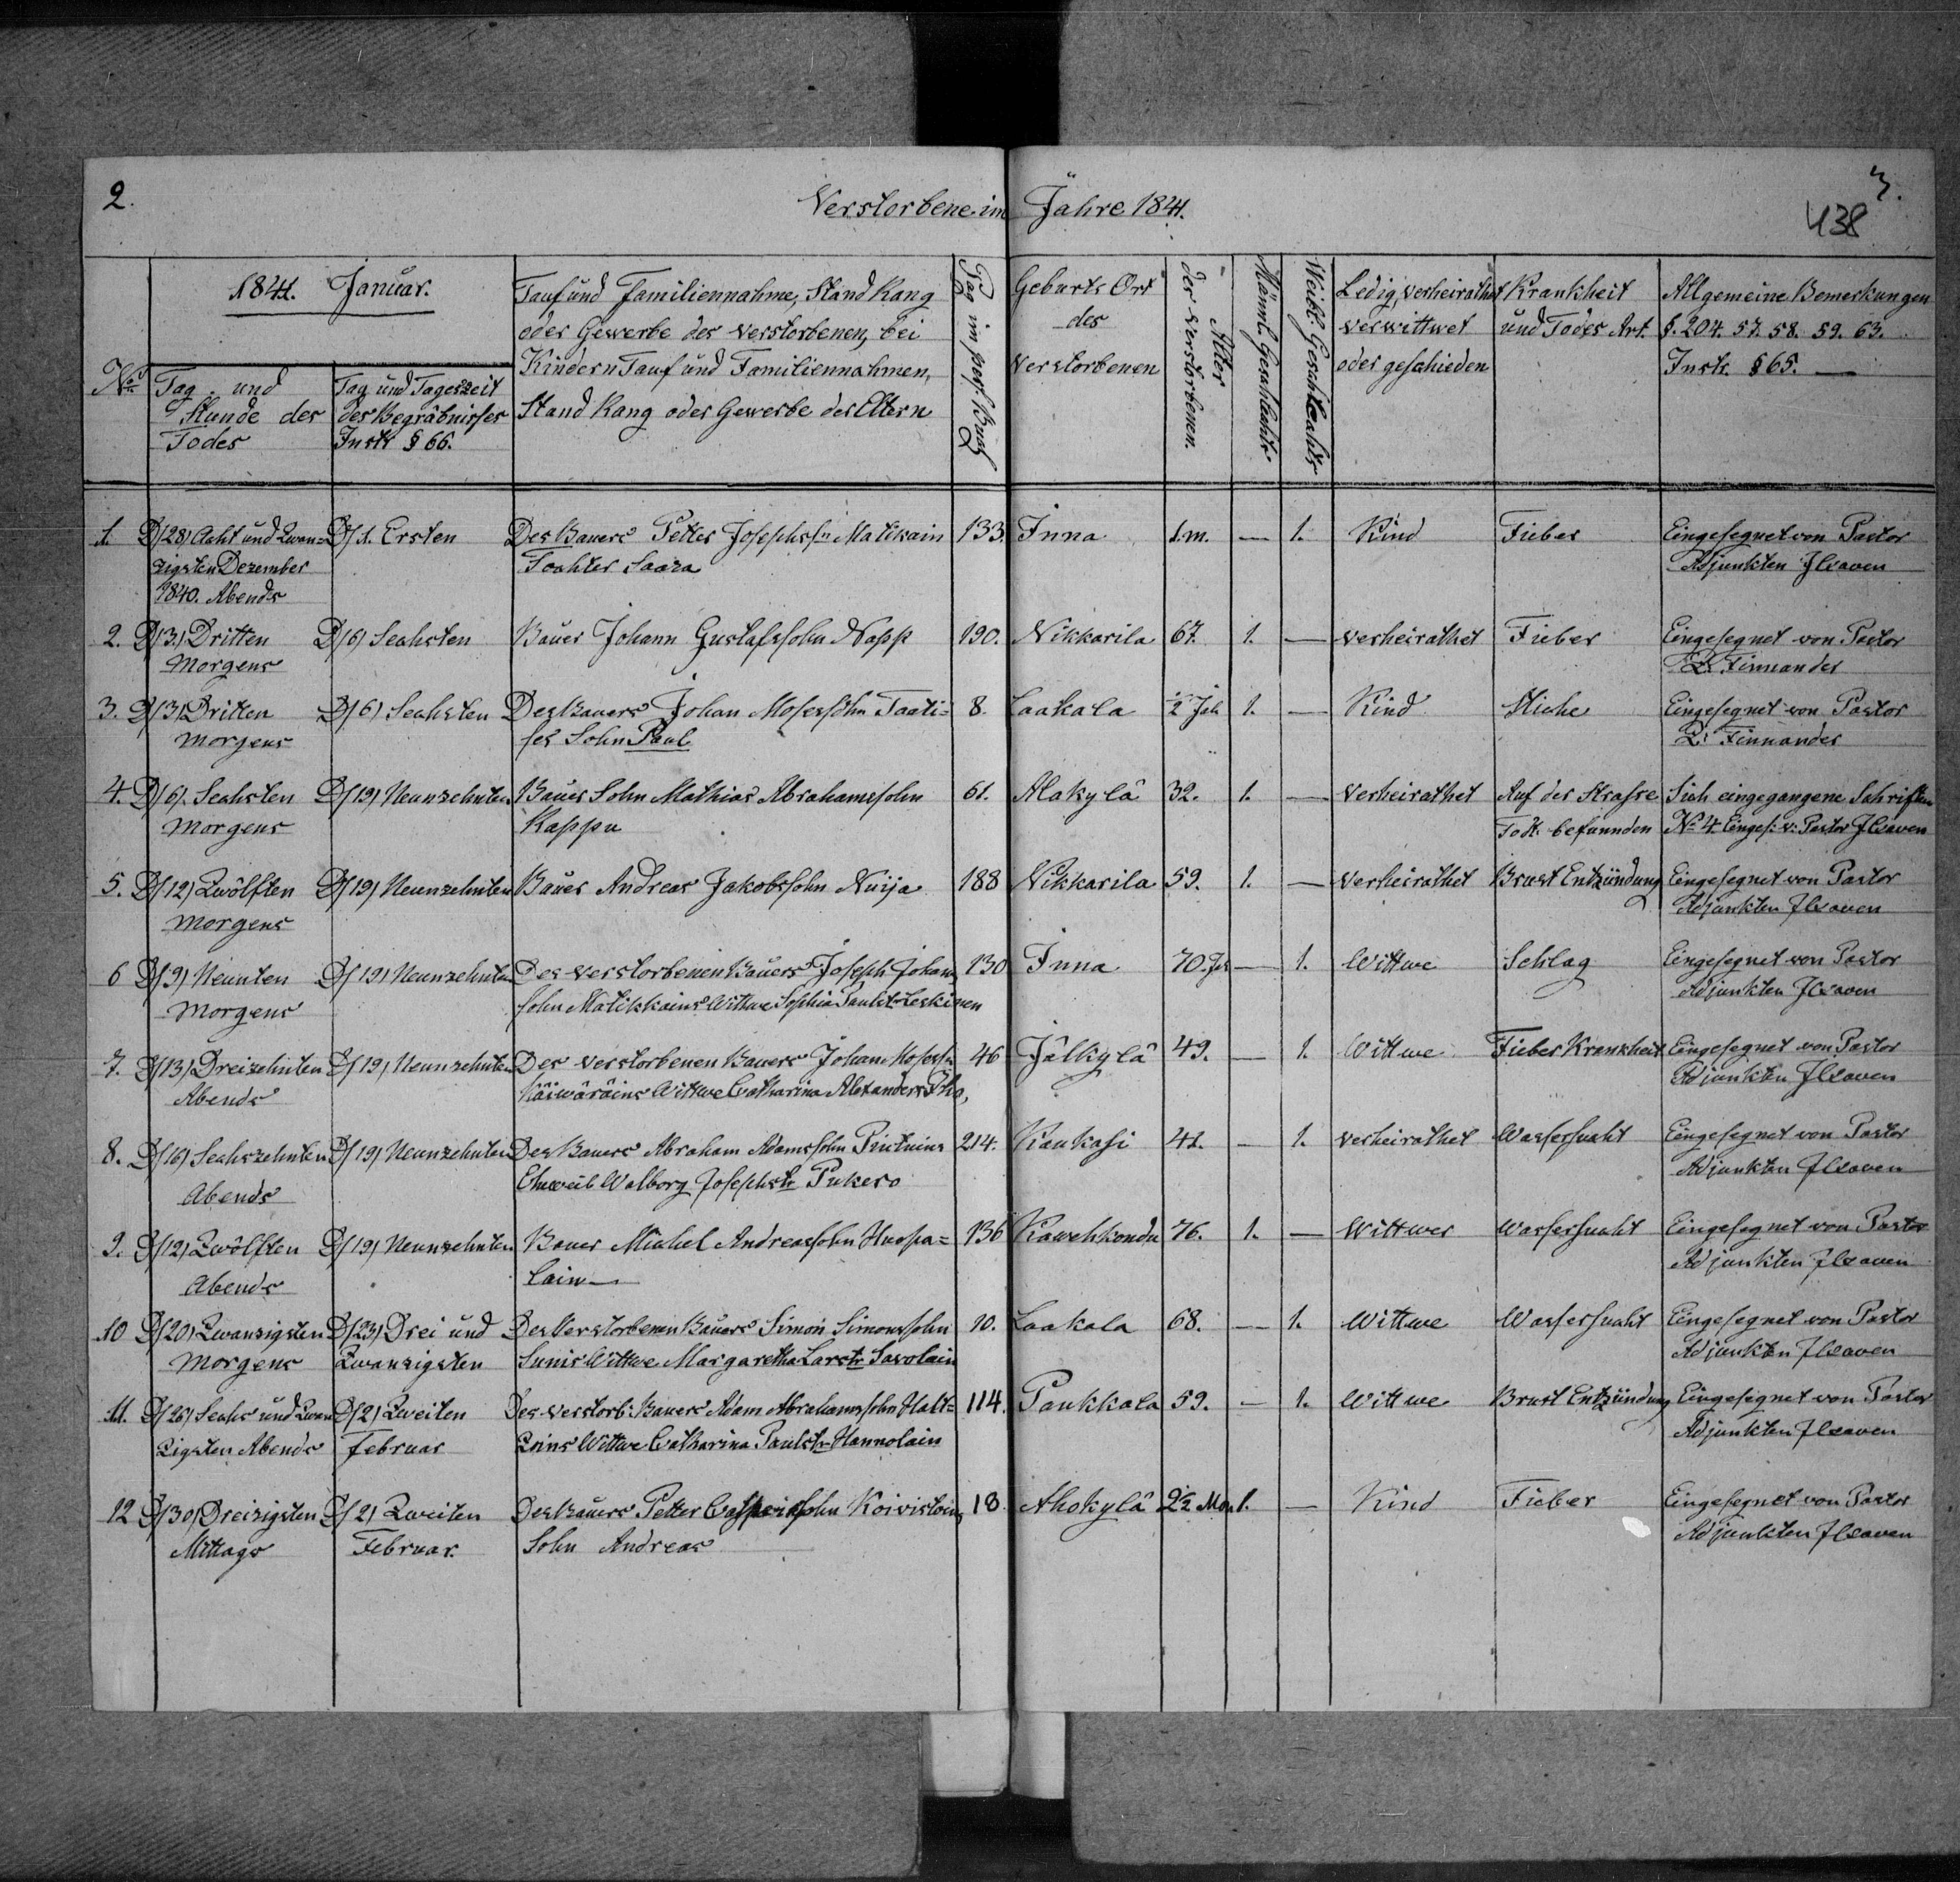 2.
Verstorbene im Jahre 1841.
3.
438
No
1841. Januar.
Tag und
Stunde des
Todes
Tag und Tageszeit
des Begräbnisses
Instr § 66.
Tauf und Familiennahme, Stand Rang
oder Gewerbe des verstorbenen, bei
Kindern Tauf und Familiennahmen,
Stand Rang oder Gewerbe der Eltern
Pag im pers. Buch
Geburts Ort
des
Verstorbenen
Alter
der Verstorbenen.
Männl. Geschlecht.
Weibl. Geschlecht
Ledig, verheirathet
verwittwet
oder geschieden
Krankheit
und Todes Art.
Allgemeine Bemerkungen
§. 204. 57. 58. 59. 63.
Instr. § 65.
1. D/28) Acht und Zwan= D/1. Ersten Des Bauers Petter Josephss:n Matikain 133. Inna 1. m. — 1. Kind Fieber Eingesegnet von Pastor
zigsten Dezember Tochter Saara Adjunkten Ilvaven
1840. Abends
2. D/3.) Dritten D/6) Sechsten Bauer Johann Gustafssohn Napp 190. Nikkarila 67. 1. — verheirathet Fieber Eingesegnet von Pastor
Morgens L. Finnander
3. D/3) Dritten D/6) Sechsten Des Bauers Johan Mosessohn Taati= 8. Laakala ½ Jah 1. — Kind Stiche Eingesegnet von Pastor
Morgens ses Sohn Paul L: Finnander
4. D/6). Sechsten D/19) Neunzehnten Bauer Sohn Mathias Abrahamssohn 61. Alakylä 32. 1. — Verheirathet Auf der Strasse Sieh eingegangene Schriften
Morgens Kappu Todt. befunnden No 4. Einges: v: Pastor Ilvaven
5. D/12) Zwölften D/19) Neunzehnten Bauer Andreas Jakobssohn Nuija 188 Nikkarila 59. 1. — Verheirathet Brust Entzündung Eingesegnet von Pastor
Morgens Adjunkten Ilvaven
6 D/9) Neunten D/19) Neunzehnten Des verstorbenen Bauers Joseph Johans 130 Inna 70. Jah — 1. Wittwe Schlag Eingesegnet von Pastor
Morgens sohn Matikkains Wittwe Sophia Paulstr Leskinen Adjunkten Ilvaven
7. D/13) Dreizehnten D/19) Neunzehnten Des verstorbenen Bauers Johan Mosess:n 46 Jälkylä 49. — 1. Wittwe Fieber Krankheit Eingesegnet von Pastor
Abends Wittwe Catharina Alexanders Tho, Adjunkten Ilvaven
8. D/16) Sechszehnten D/19) Neunzehnten Des Bauers Abraham Adamssohn 214. Kaukasi 41. — 1. verheirathet Wassersucht Eingesegnet von Pastor
Abends Eheweib Walborg Josephstr Pukero Adjunkten Ilvaven
9. D/12) Zwölften D/19) Neunzehnten Bauer Michel Andreassohn Huopa= 136 Kawehkondu 76. 1. — Wittwer Wassersucht Eingesegnet von Pastor
Abends lain Adjunkten Ilvaven
10 D/20) Zwanzigsten D/23) Drei und Des Verstorbenen Bauers Simon Simonssohn 10. Laakala 68. — 1. Wittwe Wassersucht Eingesegnet von Pastor
Morgens Zwanzigsten Sunis Wittwe Margaretha Larstr Savolain Adjunkten Ilvaven
11. D/26) Sechs und Zwan D/2) Zweiten Des verstorb: Bauers Adam Abrahamssohn Halt= 114. Paukkala 59. — 1. Wittwe Brust Entzündung Eingesegnet von Pastor
Zigsten Abends Februar Wittwe Catharina Paulstr Hannolain Adjunkten Ilvaven
12 D/30) Dreizigsten D/2) Zweiten Des Bauers Petter Casperssohn Koivistoins 18. Ahokylä 2½ Mon 1. — Kind Fieber Eingesegnet von Pastor
Mittags Februar. Sohn Andreas Adjunkten Ilvaven